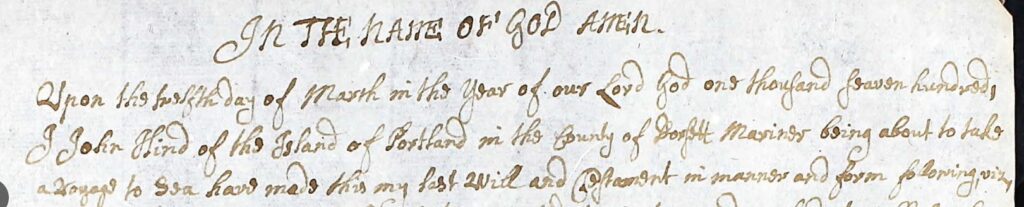 IN THE NAME OF GOD AMEN.
Upon the twelfth day of March in the Year of our Lord God one thousand seaven hundred,
I John Hind of the Island of Portland in the County of Dorsett Mariner being about to take
a Voyage to Sea have made this my last Will and Testament in manner and form following, viz,